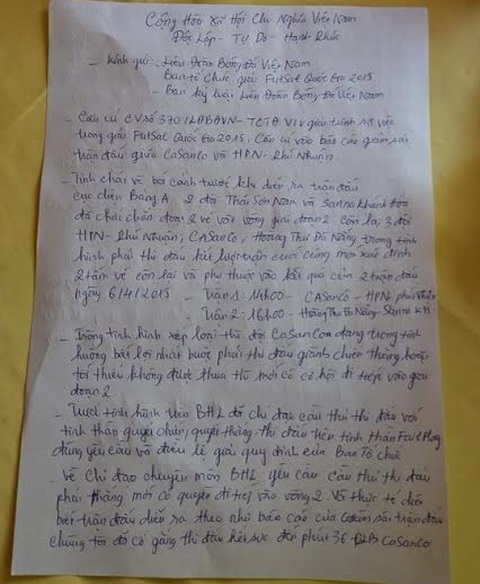 Cộng Hòa Xã Hội Chủ Nghĩa Việt Nam
Độc Lập - Tự Do - Hạnh Phúc
- Kính gửi: Liên Đoàn Bóng Đá Việt Nam
Ban tổ chức giải FutSal Quốc Gia 2015
- Ban kỷ luật Liên Đoàn Bóng Đá Việt Nam
- Căn cứ CV số 370/LĐBĐVN-TCTĐ V/v giải trình sự việc
trong giải FutSal Quốc Gia 2015. Căn cứ vào báo cáo giám sát
trận đấu giữa CaSanCo và HPN-Phú Nhuận
- Tính chất về bối cảnh trước khi diễn ra trận đấu
cục diện Bảng A 2 đội Thái Sơn Nam và Sanna Khánh Hòa
đã chắc chắn đoạt 2 vé vào vòng giai đoạn 2 còn lại 3 đội
HPN-Phú Nhuận, CASanCo, Hoàng Thư Đà Nẵng trong tình
hình phải thi đấu hết lượt trận cuối cùng mới xác định
2 tấm vé còn lại và phụ thuộc vào kết quả của 2 trận đấu
ngày 6/4/2015 - Trận 1: 14h00 - CASanCo - HPN phú Nhuận
- Trận 2: 16h00 - Hoàng Thư Đà Nẵng - Sanna KH
- Trong tình hình xếp loại thì đội CaSanCo đang trong tình
huống bất lợi nhất buộc phải thi đấu giành chiến thắng hoặc
tối thiểu không được thua thì mới có cơ hội đi tiếp vào giai
đoạn 2
- Trước tình hình trên BHL đã chỉ đạo cầu thủ thi đấu với
tinh thần quyết chiến, quyết thắng, thi đấu trên tinh thần Fair Play
đúng yêu cầu và điều lệ giải quy định của Ban Tổ chức
- Về chỉ đạo chuyên môn BHL yêu cầu cầu thủ thi đấu
phải thắng mới có quyền đi tiếp vào vòng 2. Và thực tế diễn
biến trận đấu diễn ra theo như báo cáo của Giám sát trận đấu
chúng tôi đã cố gắng thi đấu hết sức đến phút 36 CaSanCo